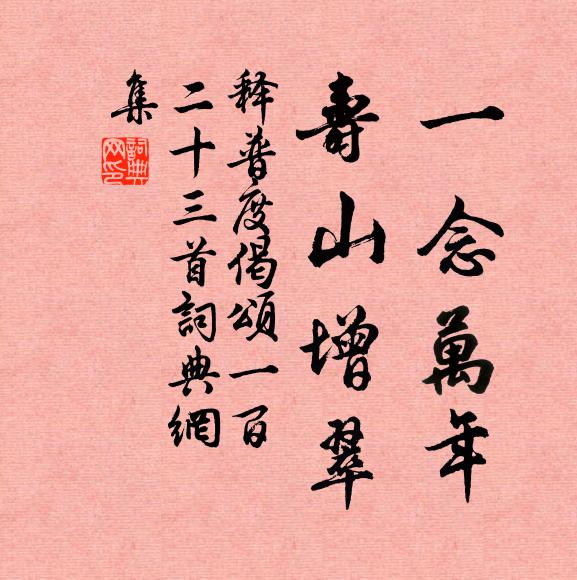 一念萬年
壽山增翠
释普度偈頌一百
二十三首詞典網
集
詞典
网印